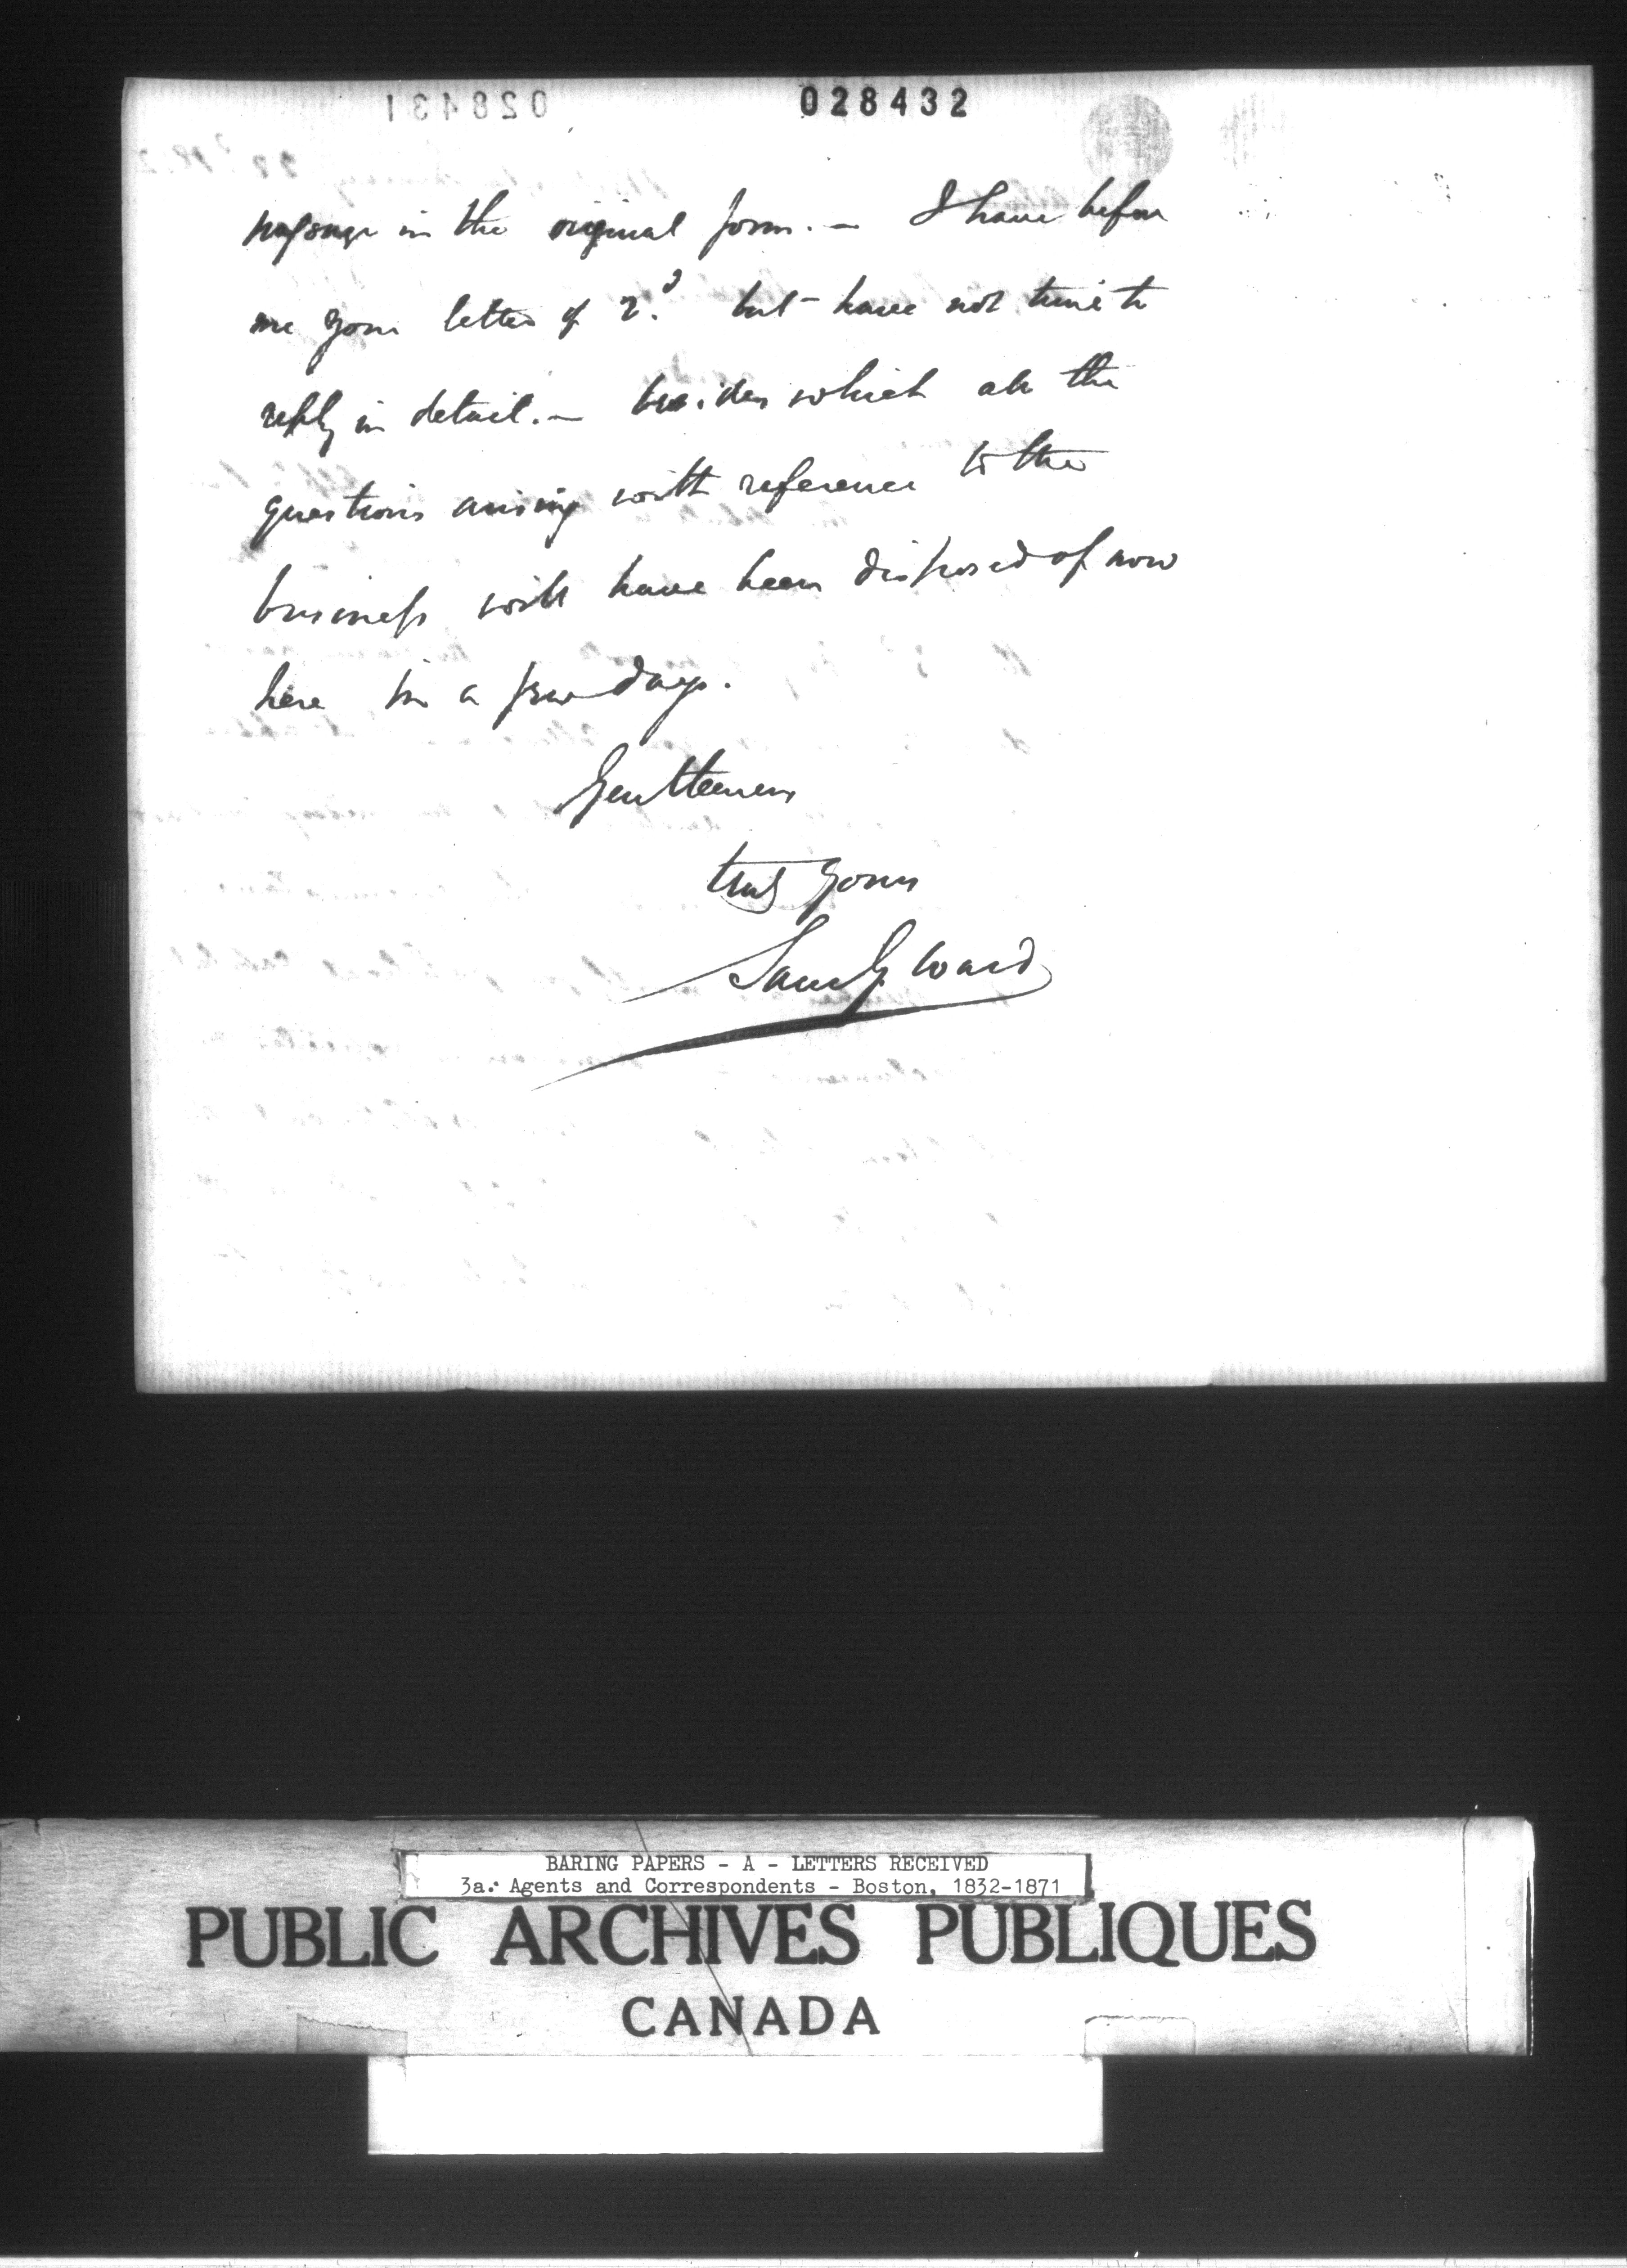 028432
passage in the original form. — I have before
me your letter of 2.d but have not time to
reply in detail. — besides which all the
questions arising with reference to the
business will have been disposed of now
here in a few days.
Gentlemen
truly yours
Sam G Ward
BARING PAPERS - A - LETTERS RECEIVED
3a. Agents and Correspondents - Boston, 1832-1871
PUBLIC ARCHIVES PUBLIQUES
CANADA